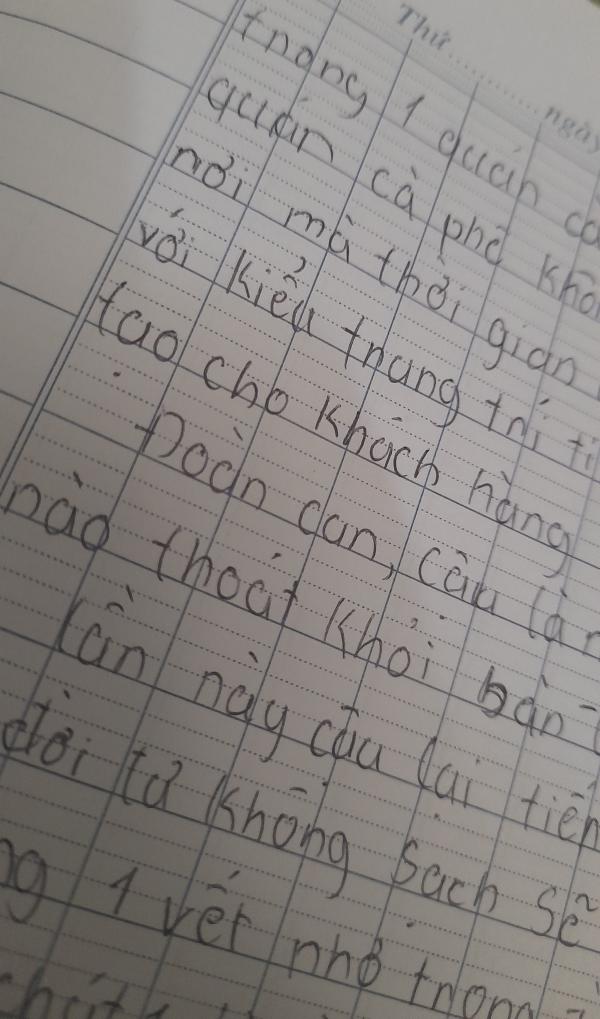 Thứ ........... ngày
trong 1 quán cà
quán cà phê khôn
nơi mà thời gian
với kiểu trang trí
tạo cho khách hàng
Đoàn can, cậu
nào thoát khỏi bàn
lần này cậu lại tiến
đời tớ không sạch sẽ
ng 1 vết nhơ trong